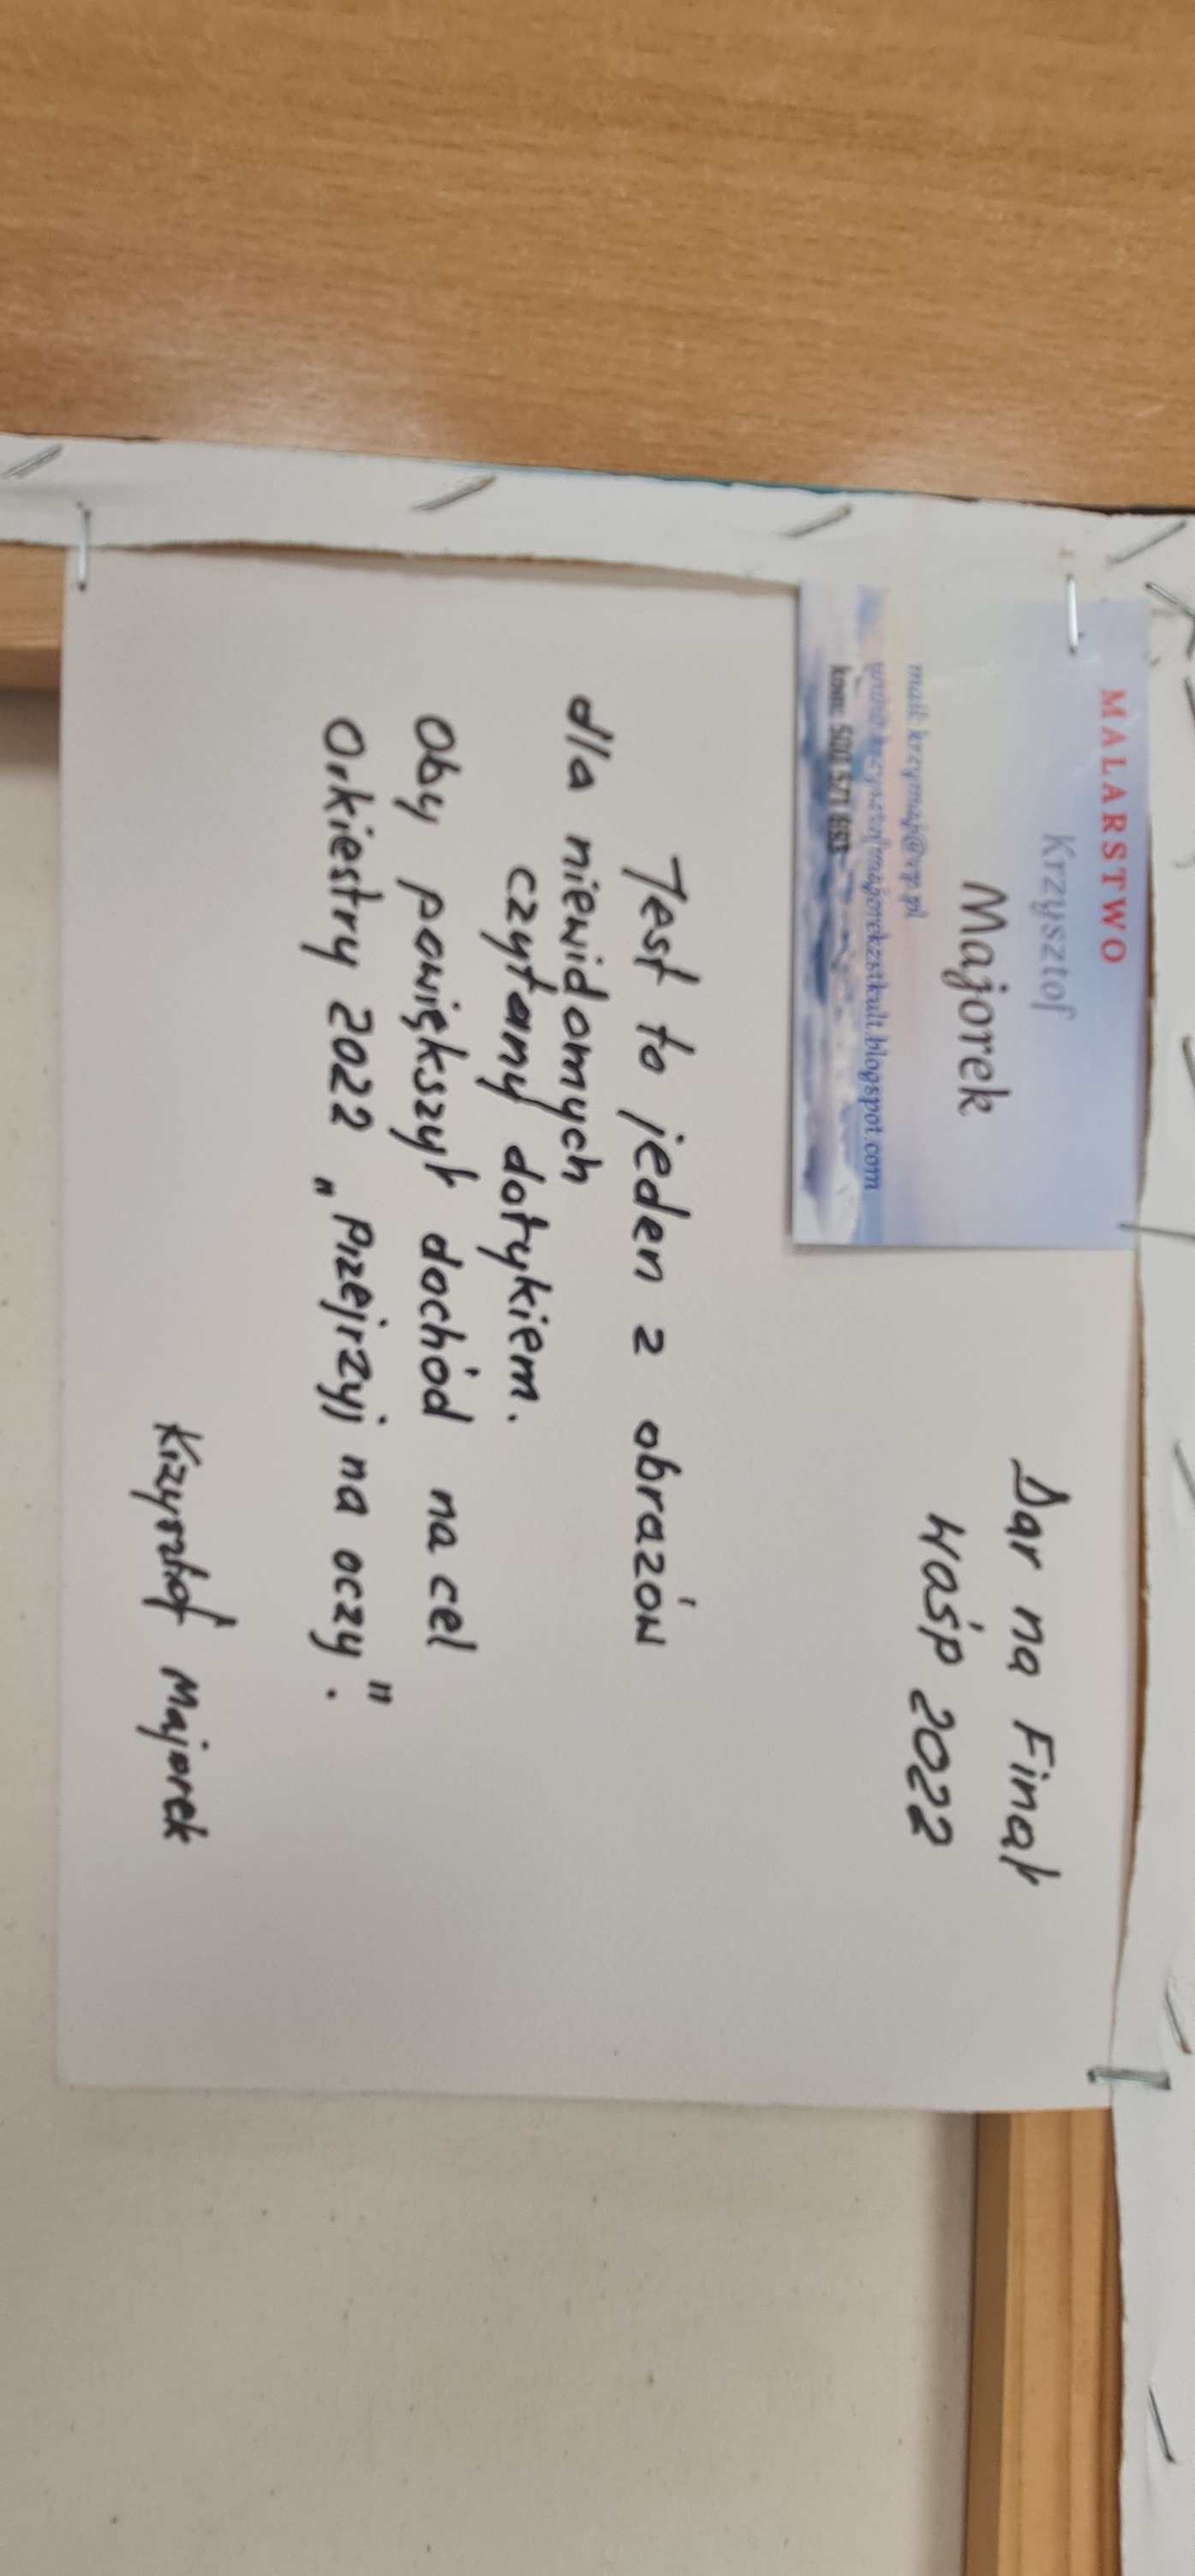 MALARSTWO
Krzysztof
Majorek
mail: krzymaj@wp.pl
www.krzysztofmajorekzsikult.blogspot.com
kom: 500 571 663
Dar na Finał
WOŚP 2022
Jest to jeden z obrazów
dla niewidomych
czytany dotykiem.
Oby powiększył dochód na cel
Orkiestry 2022 „Przejrzyj na oczy".
Krzysztof Majorek